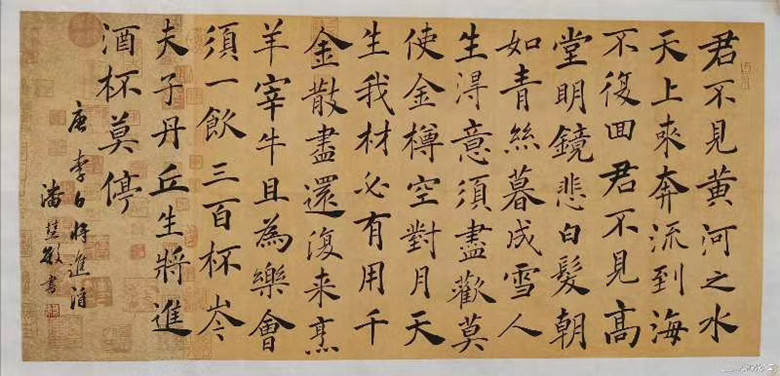 君不見黃河之水
天上來奔流到海
不復回君不見高
堂明鏡悲白髮朝
如青絲暮成雪人
生得意須盡歡莫
使金樽空對月天
生我材必有用千
金散盡還復来烹
羊宰牛且為樂會
須一飲三百杯岑
夫子丹丘生將進
酒杯莫停
唐李白將進酒
潘慧敏書